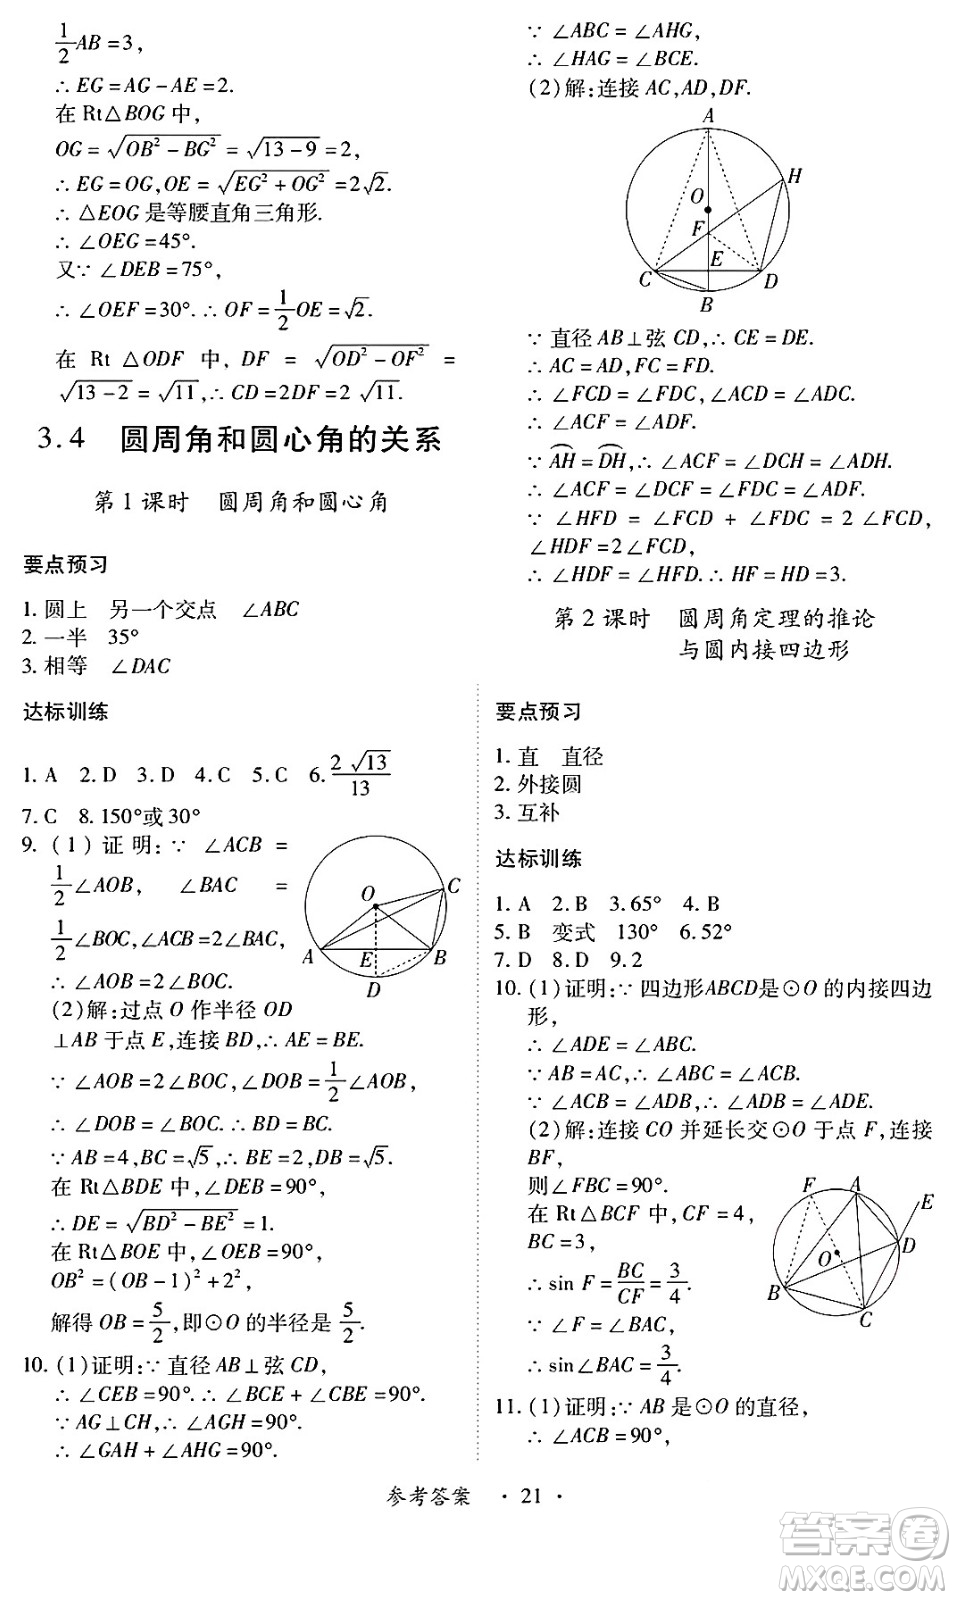 1/2 AB=3,
∴ EG=AG-AE=2.
在 Rt△BOG 中,
OG=√(OB²-BG²)=√(13-9)=2,
∴ EG=OG,OE=√(EG²+OG²)=2√2.
∴ △EOG 是等腰直角三角形.
∴ ∠OEG=45°.
又∵ ∠DEB=75°,
∴ ∠OEF=30°.∴ OF=1/2 OE=√2.
在 Rt △ODF 中, DF = √(OD²-OF²) =
√(13-2)=√11,∴ CD=2DF=2√11.
3.4 圆周角和圆心角的关系
第1课时 圆周角和圆心角
要点预习
1.圆上 另一个交点 ∠ABC
2.一半 35°
3.相等 ∠DAC
达标训练
1.A 2.D 3.D 4.C 5.C 6.2√13/13
7.C 8.150°或30°
9.(1)证明:∵ ∠ACB =
1/2∠AOB, ∠BAC =
1/2∠BOC,∠ACB=2∠BAC,
∴ ∠AOB=2∠BOC.
(2)解:过点 O 作半径 OD
⊥AB 于点 E,连接 BD,∴ AE=BE.
∵ ∠AOB=2∠BOC,∠DOB=1/2∠AOB,
∴ ∠DOB=∠BOC.∴ BD=BC.
∵ AB=4,BC=√5,∴ BE=2,DB=√5.
在 Rt△BDE 中,∠DEB=90°,
∴ DE=√(BD²-BE²)=1.
在 Rt△BOE 中,∠OEB=90°,
OB²=(OB-1)²+2²,
解得 OB=5/2,即⊙O 的半径是 5/2.
10.(1)证明:∵ 直径 AB⊥弦 CD,
∴ ∠CEB=90°.∴ ∠BCE+∠CBE=90°.
∵ AG⊥CH,∴ ∠AGH=90°.
∴ ∠GAH+∠AHG=90°.
O
C
A
E
B
D
∵ ∠ABC=∠AHG,
∴ ∠HAG=∠BCE.
(2)解:连接 AC,AD,DF.
A
H
O
F
E
C
D
B
∵ 直径 AB⊥弦 CD,∴ CE=DE.
∴ AC=AD,FC=FD.
∴ ∠FCD=∠FDC,∠ACD=∠ADC.
∴ ∠ACF=∠ADF.
∵ ⌒AH=⌒DH,∴ ∠ACF=∠DCH=∠ADH.
∴ ∠ACF=∠DCF=∠ADF=∠ADH.
∵ ∠HFD = ∠FCD + ∠FDC = 2 ∠FCD,
∠HDF=2∠FCD,
∴ ∠HDF=∠HFD.∴ HF=HD=3.
第2课时 圆周角定理的推论
与圆内接四边形
要点预习
1.直 直径
2.外接圆
3.互补
达标训练
1.A 2.B 3.65° 4.B
5.B 变式 130° 6.52°
7.D 8.D 9.2
10.(1)证明:∵ 四边形ABCD是⊙O 的内接四边
形,
∴ ∠ADE=∠ABC.
∵ AB=AC,∴ ∠ABC=∠ACB.
∵ ∠ACB=∠ADB,∴ ∠ADB=∠ADE.
(2)解:连接 CO 并延长交⊙O 于点 F,连接
BF,
则∠FBC=90°.
在 Rt△BCF 中,CF=4,
BC=3,
∴ sin F=BC/CF=3/4.
∵ ∠F=∠BAC,
∴ sin∠BAC=3/4.
F
A
E
D
O
B
C
11.(1)证明:∵ AB 是⊙O 的直径,
∴ ∠ACB=90°,
参考答案 · 21 ·
答案圈
MXQE.COM